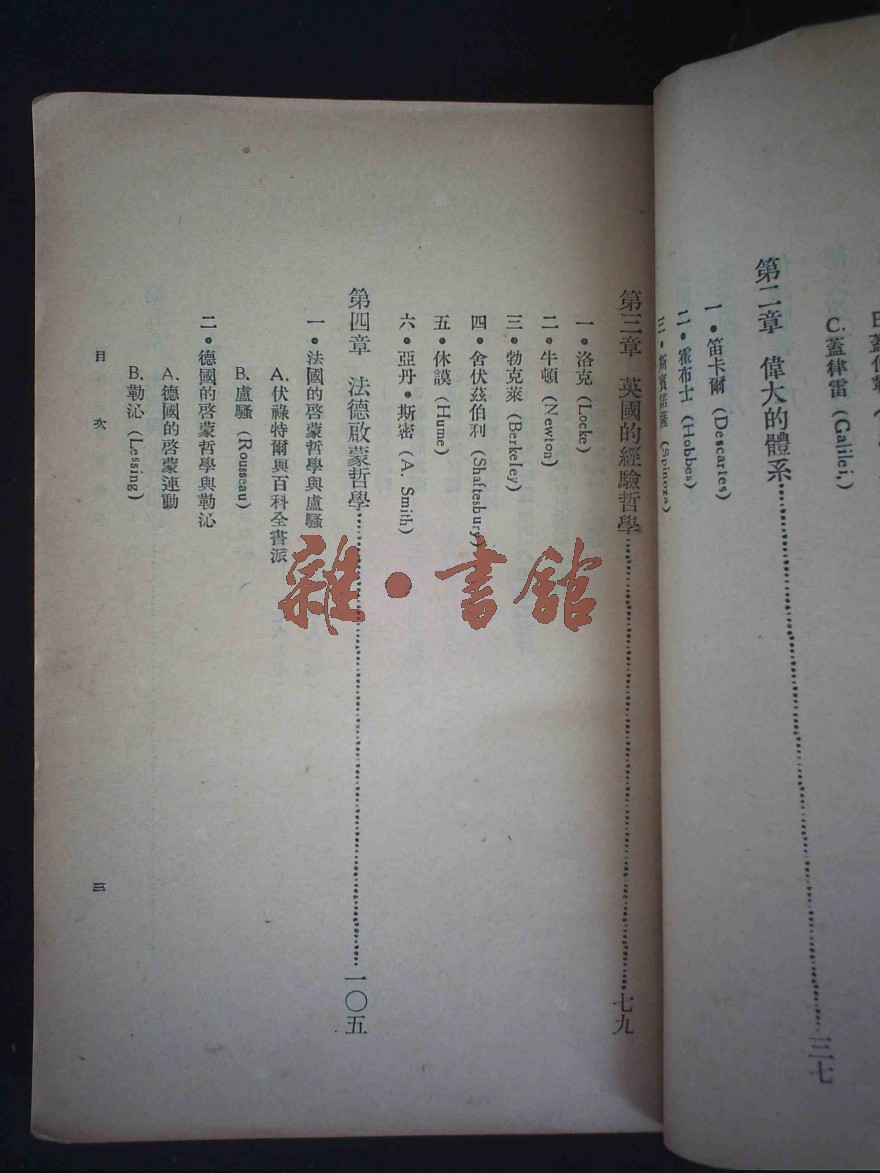 C.蓋律雷 (Galilei,)
第二章 偉大的體系……三七
一・笛卡爾 (Descartes)
二・霍布士 (Hobbes)
三・斯賓諾薩 (Spinoza)
第三章 英國的經驗哲學……七九
一・洛克 (Locke)
二・牛頓 (Newton)
三・勃克萊 (Berkeley)
四・舍伏茲伯利 (Shaftesbury)
五・休謨 (Hume)
六・亞丹・斯密 (A. Smith)
第四章 法德啟蒙哲學……一〇五
一・法國的啓蒙哲學與盧騷
A.伏祿特爾與百科全書派
B.盧騷 (Rousseau)
二・德國的啓蒙哲學與勒沁
A.德國的啓蒙運動
B.勒沁 (Lessing)
目次
三
雜・書館